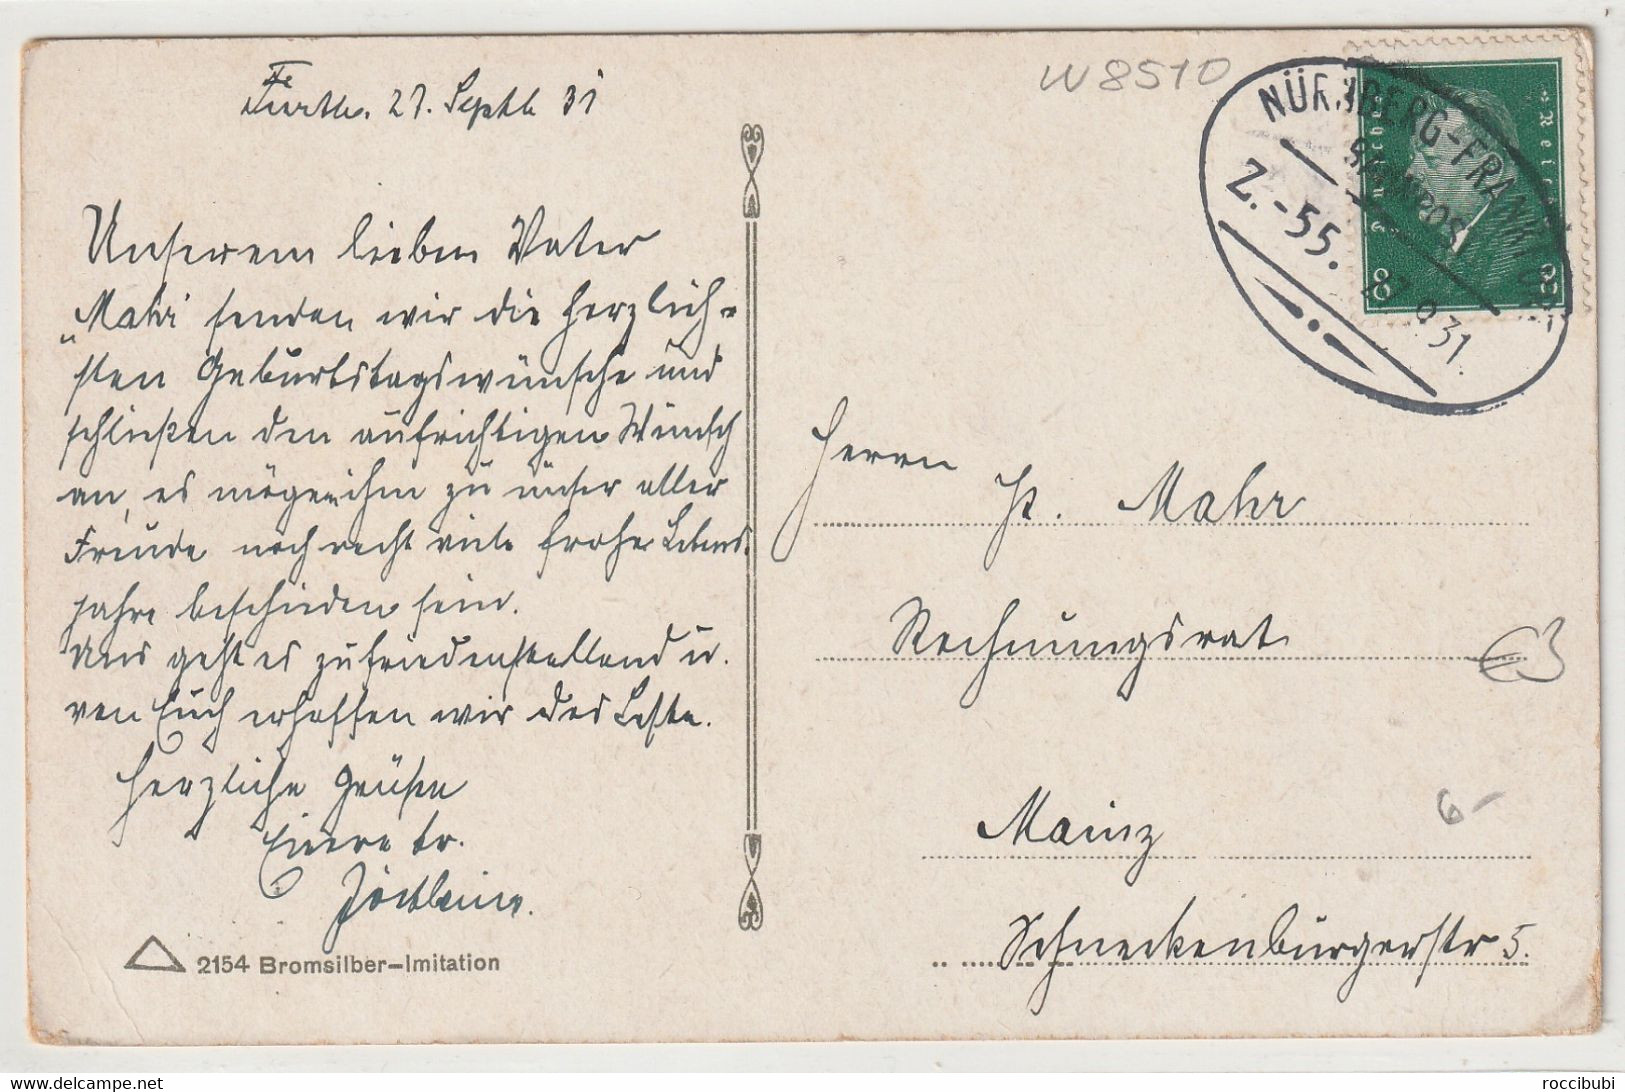 Fürth. 27. Septb 31
W 8510
Unserem lieben Vater
"Mahr" senden wir die herzlich-
sten Geburtstagswünsche und
schließen den aufrichtigen Wunsch
an, es mögen ihm zu unser aller
Freude noch recht viele frohe Lebens-
jahre beschieden sein.
Uns geht es zufriedenstellend u.
von Euch erhoffen wir das Beste.
Herzliche Grüße
Eure tr.
2154 Bromsilber-Imitation
NÜRNBERG-FRANKFURT
BAHNPOST
Z.-55. 9 31.
Deutsches Reich
8 8
Herrn
Mahr
Rechnungsrat
€3
Mainz
6-
Schneckenburgerstr 5.
delcampe.net
roccibubi